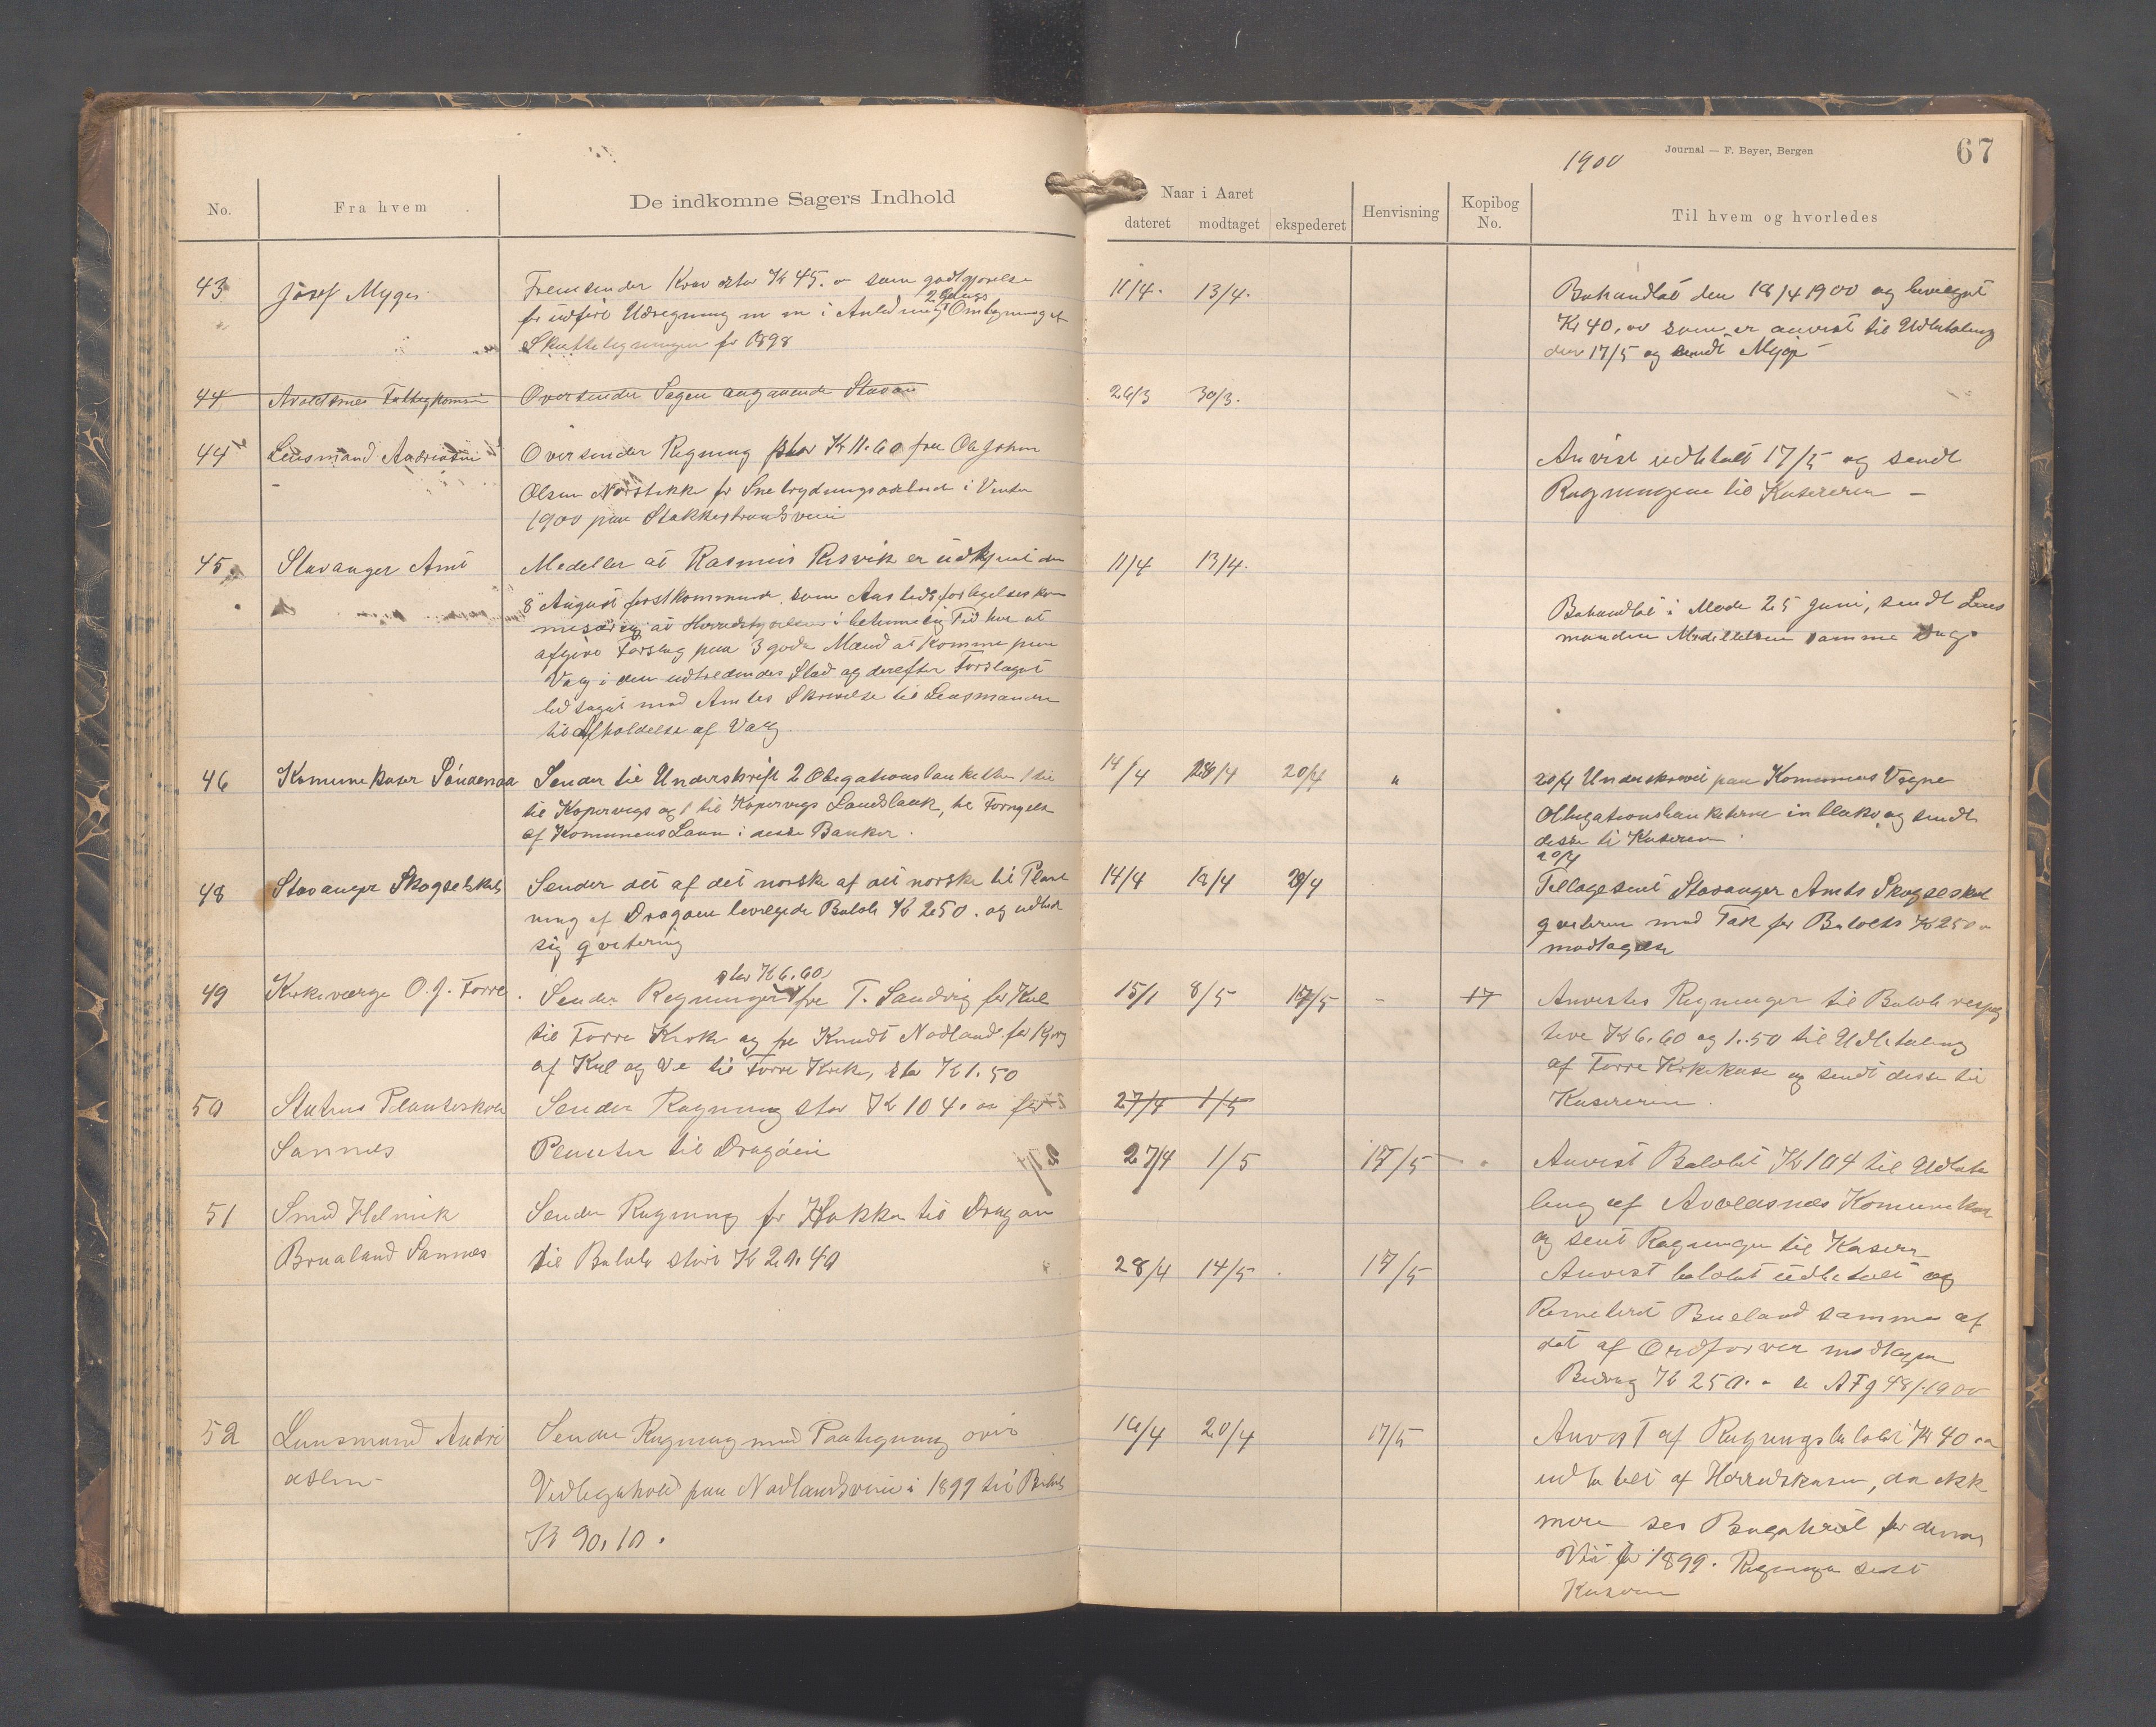 1900
Journal — F. Beyer, Bergen
67
No.
Fra hvem
De indkomne Sagers Indhold
Naar i Aaret
dateret
modtaget
ekspederet
Henvisning
Kopibog No.
Til hvem og hvorledes
43
Josef Myge
Fremsender Krav stor Kr 45. som godtgjørelse
for udført Udregning m m i Anledning 2 Gangs Omligning af
Skatteligningen for 1898
11/4.
13/4.
Behandlet den 18/4 1900 og bevilget
Kr 40,00 som er anvist til Udbetaling
den 17/5 og sendt Myge
44
Avaldsnes
Oversender Sagen angaaende Stavan
26/3
30/3.
44
Lensmand Andreasen
Oversender Regning stor Kr 11.60 fra Ole Johan
Olsen Norstokke for Snebrydningsarbeide i Vinter
1900 paa Stokkestrandsveien
Anvist udbetalt 17/5 og sendt
Regningene til Kasereren —
45.
Stavanger Amt
Medeller at Rasmus Risvik er udtjent den
8 August førstkommende som
at Herredstyrelsen i betimelig Tid har at
afgive Forslag paa 3 gode Mænd at komme paa
Valg i den udtrædendes Sted og derefter Forslaget
ledsaget med Amtets Skrivelse til Lensmanden
til Afholdelse af Valg.
11/4
13/4.
Behandlet i Møde 25 Juni, sendt Lens
manden Meddelelsen samme Dag.
46
Komunekaser Søndenaa
Sender til Underskrift 2 Obligationsblanketter 1 til
til Kopervigs og 1 til Kopervigs Landbank, til Fornyelse
af Komunens Laan i disse Banker.
14/4
18/4
20/4
"
20/4 Underskrevet paa Komunens Vegne
Obligationsblanketerne in blako, og sendt
disse til Kasereren
48
Stavanger Skogselskab
Sender det af det norske af det norske til Plant
ning af Dragøen bevilgede Beløb Kr 250. og udbed
sig qvitering
14/4
18/4
20/4
20/4
Tillagesent Stavanger Amts Skogselskab
qviteren med Tak for Beløbets Kr 250
modtagelse
49
Kirkeværge O. J. Førre.
stor Kr 6.60
Sender Regninger fra T. Sandvig for Kul
til Førre Kirke og fra Knudt Nodland for Kjørg
af Kul og Ve til Førre Kirke, stor Kr 1.50
15/1
8/5
17/5
-
17
Anvistes Regninger til Beløb respeg
tive Kr 6.60 og 1.50 til Udbetaling
af Førre Kirkekase og sendt disse til
Kasereren.
50
Statens Planteskole
Sannes
Sender Regning stor Kr 104.00 for
Planter til Dragøen
27/4
1/5
27/4
1/5
17/5
Anvist Beløbet Kr 104 til Udbeta
ling af Avaldsnes Komunekas
og sent Regningen til Kaserer
51
Smed Helmik
Brualand Sannes
Sender Regning for Hakker til Dragøen
til Beløb stort Kr 20.40
28/4
14/5
.
17/5
Anvist beløbet udbetalt og
Remeterst Bueland samme af
det af Ordfører modtagne
Bidrag Kr 250.- se 48/1900
52
Lensmand Andre
asen
Sender Regning med Paategning over
Vedligehold paa Nodlandsveien i 1899 til Beløb
Kr 90.10.
16/4
20/4
17/5
Anvist af Regningsbeløbet Kr 40
udbetalt af Herredskasen, da ikke
mere ses for denne
Vei for 1899. Regningen sent
Kaseren